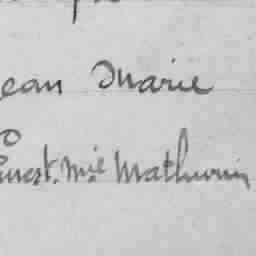 ean Marie
Ernest. Mie Mathurin